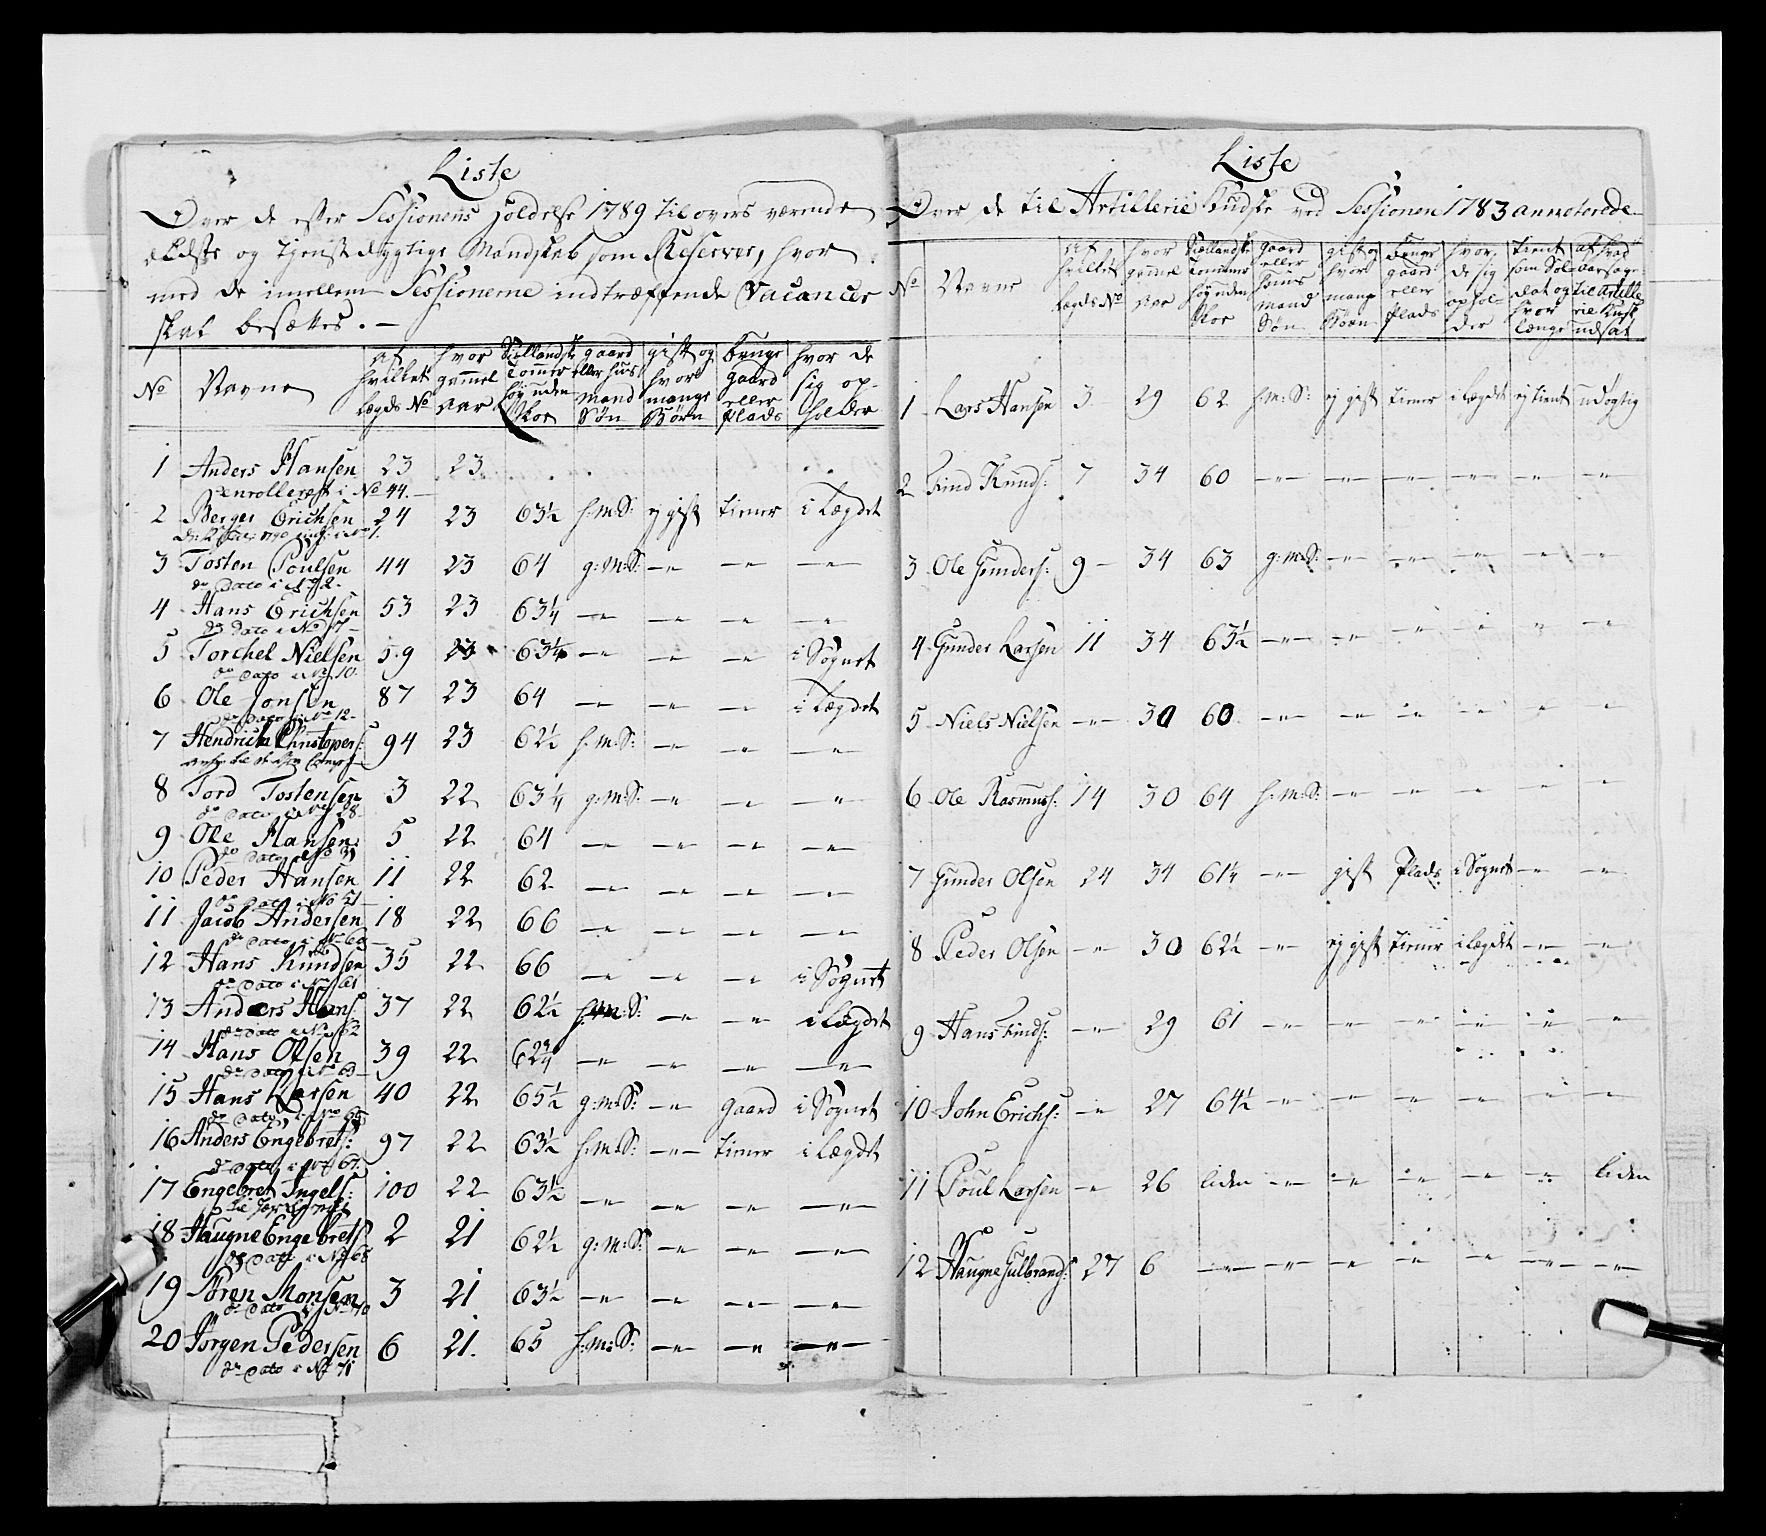 Liste
Over de efter Sessionens Holdelse 1789 til overs værende
ældste og tienstdygtige Mandskab som Reserver, hvor
med de imellem Sessionerne indtræffende Vacancer
skal besættes. —
No | Navne | af hvilket Lægds No | hvor gammel Aar | Siællandske Tommer høy uden Skoe | gaard eller huus mand Søn | gift og hvor mange Børn | bruge gaard eller Plads | hvor de sig opholder
1 Anders Hansen 23 23
enrolleret i No 44. —
2 Berger Erichsen 24 23 63½ h:m:S: ej gift tiener i Lægdet
3 Tosten Poulsen 44 23 64 g:m:S: —„— —„— —„—
do Dato i No 2.
4 Hans Erichsen 53 23 63¼ —„— —„— —„— —„—
do Dato i No 7
5 Torchel Nielsen 59 23 63¼ —„— —„— —„— i Sognet
do Dato i No 10.
6 Ole Jonsen 87 23 64 —„— —„— —„— i Lægdet
do Dato i No 12.
7 Hendrich Christophers: 94 23 62½ h:m:S: —„— —„— —„—
8 Tord Tostensen 3 22 63¼ g:m:S: —„— —„— —„—
do Dato i No 28
9 Ole Hansen 5 22 64 —„— —„— —„— —„—
do Dato i No 31
10 Peder Hansen 11 22 62 —„— —„— —„— —„—
do Dato i No 51
11 Jacob Andersen 18 22 66 —„— —„— —„— —„—
do Dato i No 60
12 Hans Knudsen 35 22 66 —„— —„— —„— i Sognet
do Dato i No 61
13 Anders Hans: 37 22 62½ h:m:S: —„— —„— i Lægdet
do Dato i No 62
14 Hans Olsen 39 22 62¾ —„— —„— —„— —„—
do Dato i No 63
15 Hans Larsen 40 22 65½ g:m:S: —„— gaard i Sognet
do Dato i No 66
16 Anders Engebrets: 97 22 63½ h:m:S: —„— tiener i Lægdet
do Dato i No 67.
17 Engebret Ingels: 100 22 63½ —„— —„— —„— —„—
18 Haugne Engebrets 2 21 62½ g:m:S: —„— —„— —„—
do Dato i No 68
19 Søren Monsen 3 21 63½ —„— —„— —„— —„—
do Dato i No 70
20 Jørgen Pedersen 6 21. 65 h:m:S: —„— —„— —„—
do Dato i No 71
Liste
Over de til Artillerie Kudske ved Sessionen 1783 annoterede
No | Navne | af hvilket Lægds No | hvor gammel Aar | Siællandske Tommer høy uden Skoe | gaard eller Huus mand Søn | gift og hvor mange Børn | bruge gaard eller Plads | hvor de sig opholder | tient som Soldat og hvor længe | af hvad aarsage til Artillerie Kusk udsat
1 Lars Hansen 3 29 62 h:m:S: ej gift tiener i Lægdet ej tient udøgtig
2 Find Knuds: 7 34 60 —„— —„— —„— —„— —„— —„—
3 Ole Gunders: 9 — 34 63 g:m:S: —„— —„— —„— —„— —„—
4 Gunder Larsen 11 34 63½ —„— —„— —„— —„— —„— —„—
5 Niels Nielsen —„— 30 60 —„— —„— —„— —„— —„— —„—
6 Ole Rasmuss: 14 30 64 h:m:S: —„— —„— —„— —„— —„—
7 Gunder Olsen 24 34 61¼ —„— gift Plads i Sognet —„— —„—
8 Peder Olsen —„— 30 62½ —„— ej gift tiener i Lægdet —„— —„—
9 Hans Finds: —„— 29 61 —„— —„— —„— —„— —„— —„—
10 John Erichs: —„— 27 64½ —„— —„— —„— —„— —„— —„—
11 Poul Larsen —„— 26 liden —„— —„— —„— —„— —„— liden
12 Haugne Gulbrands: 27 6 —„— —„— —„— —„— —„— —„— —„—